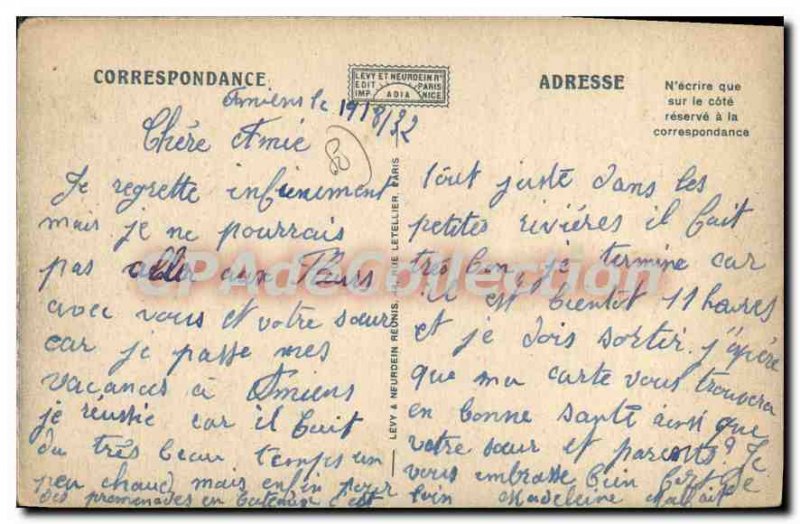 CORRESPONDANCE
LEVY ET NEURDEIN Rs
EDIT PARIS
IMP. ADIA NICE
ADRESSE
N'écrire que
sur le côté
réservé à la
correspondance
Amiens le 19/8/32
Chére Amie
80
Je regrette infiniement
mais je ne pourrais
pas aller aux Fleurs
avec vous et votre sœur
car je passe mes
vacances à Amiens
je réussie car il fait
du très beau temps un
peu chaud mais enfin pour
des promenades en bateau c'est
LEVY & NEURDEIN RÉUNIS, 44, RUE LETELLIER, PARIS
tout juste dans les
petites riviéres il fait
très bon, je termine car
il est bientôt 11 heures
et je dois sortir. j'éspére
que ma carte vous trouvera
en bonne santé ainsi que
votre sœur et parents. Je
vous embrasse bien
loin Madeleine
CPAdeCollection